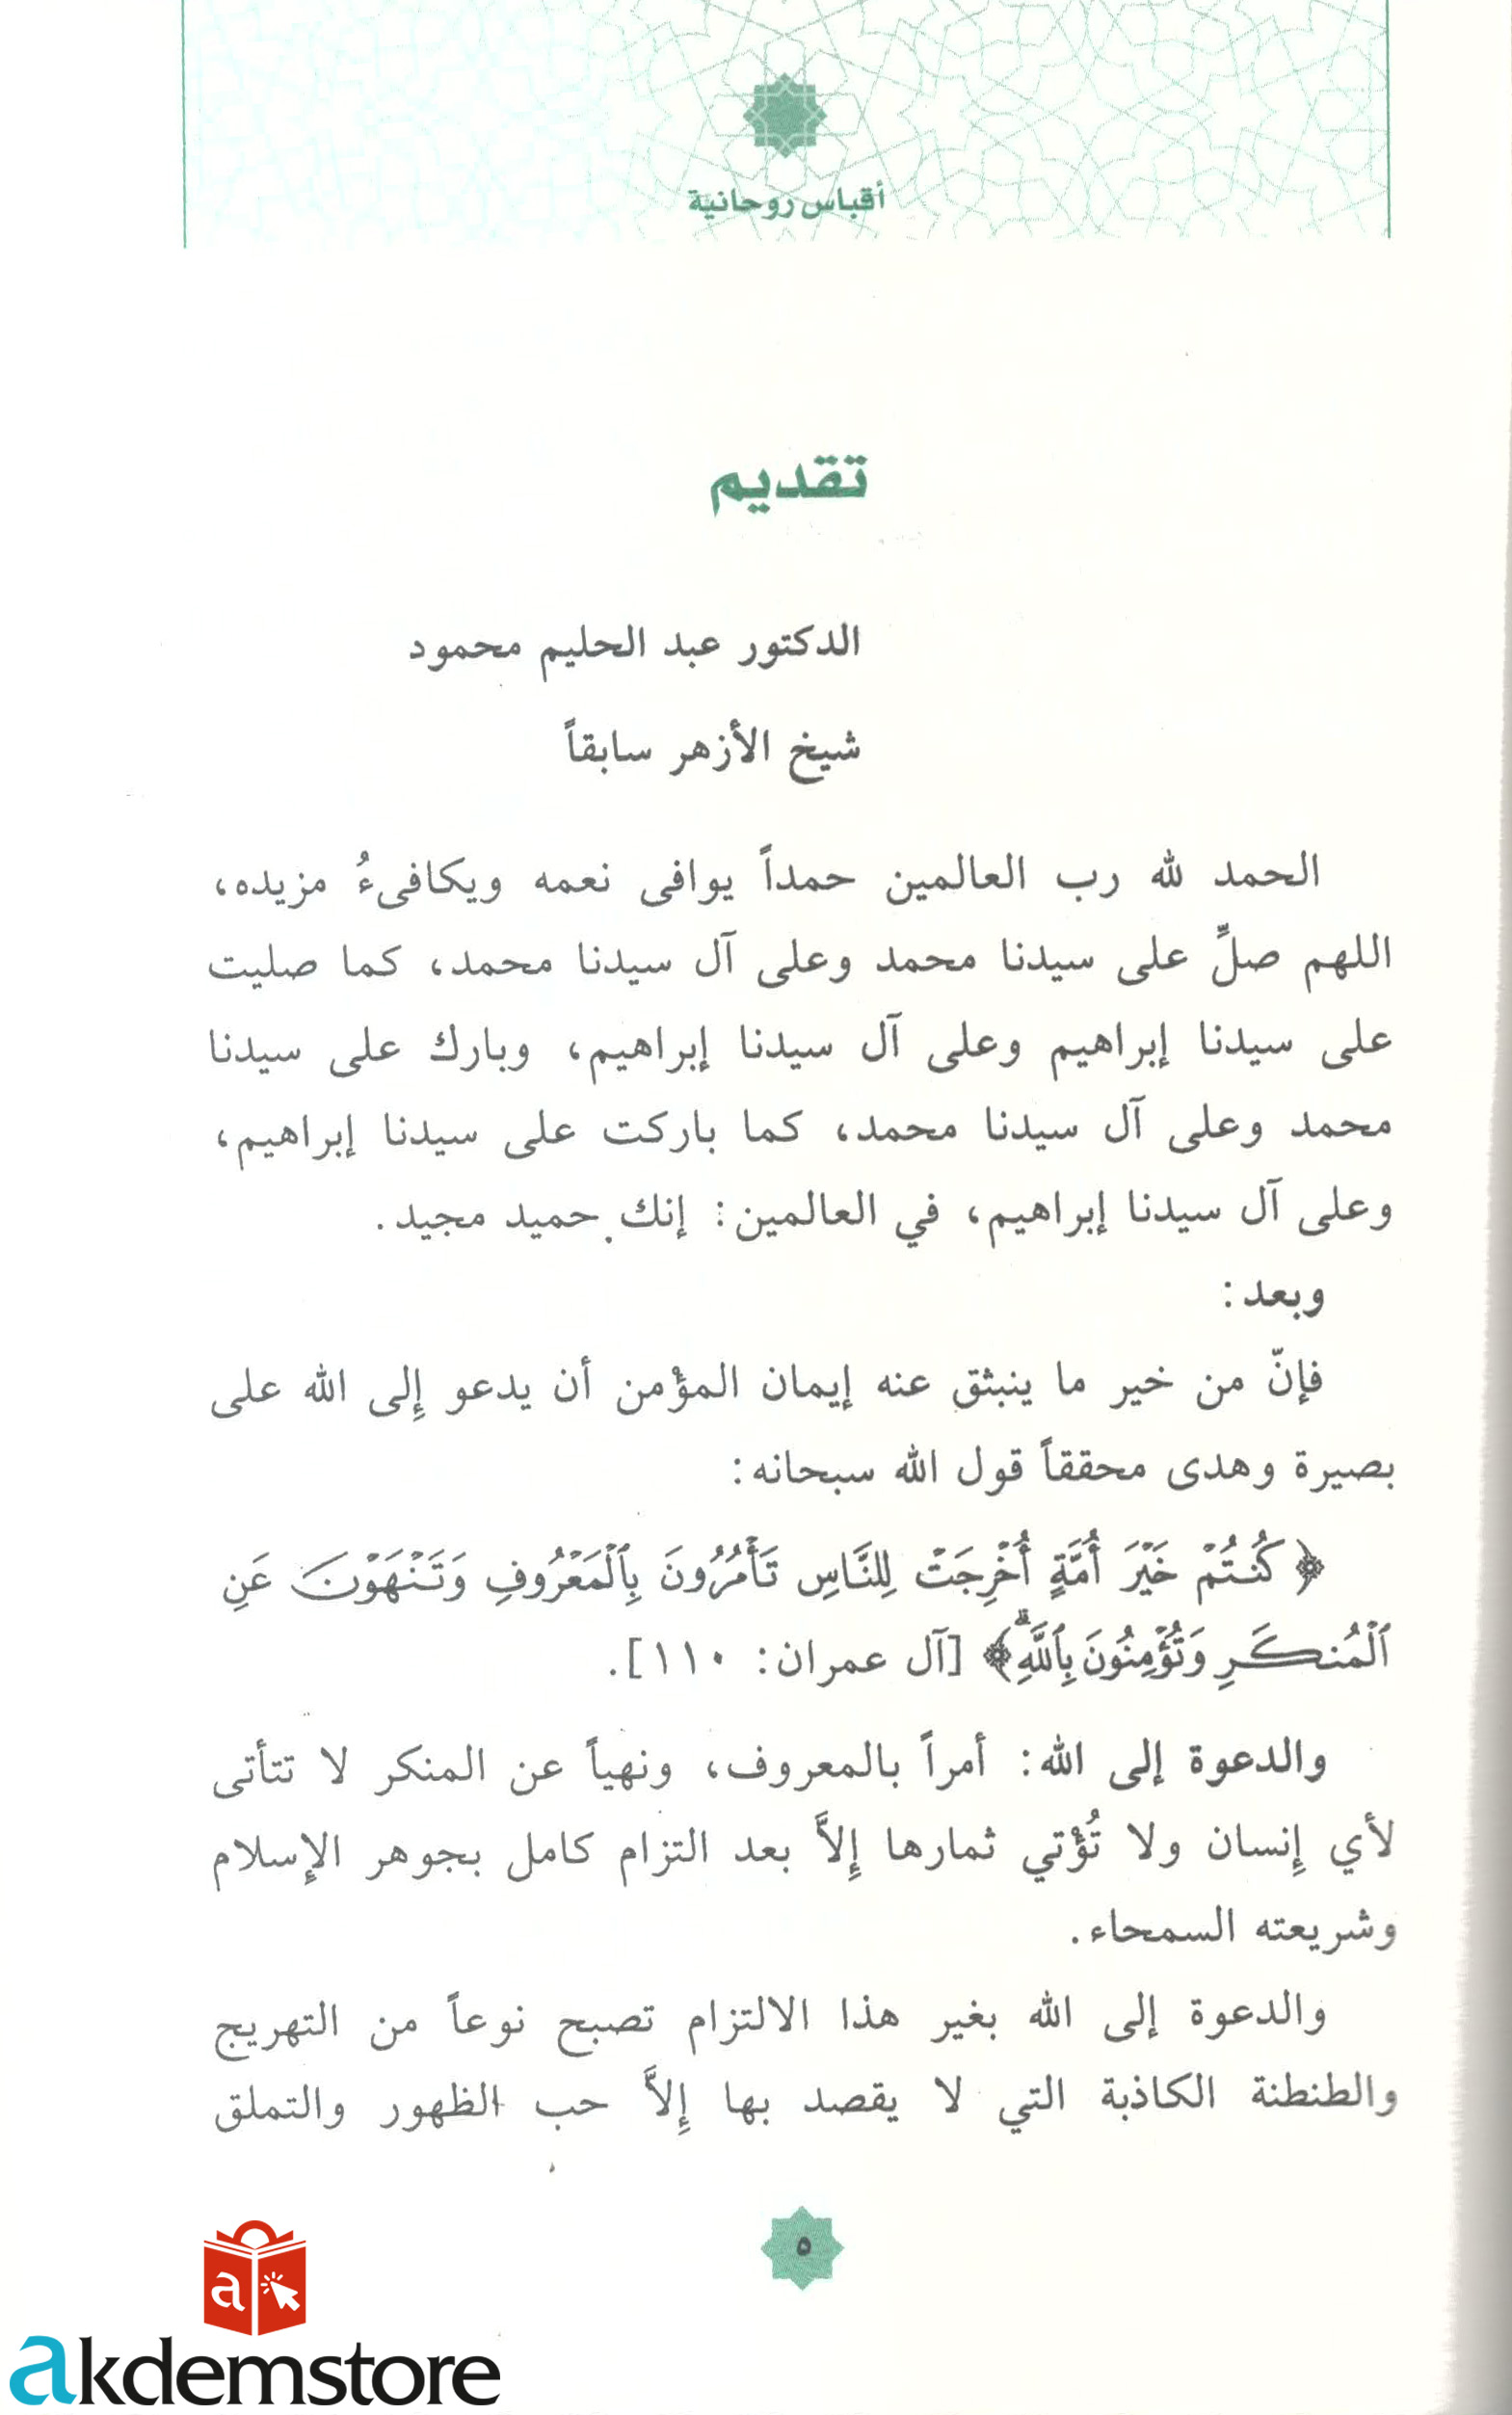 أقباس روحانية
تقديم
الدكتور عبد الحليم محمود
شيخ الأزهر سابقاً
الحمد لله رب العالمين حمداً يوافى نعمه ويكافىءُ مزيده،
اللهم صلِّ على سيدنا محمد وعلى آل سيدنا محمد، كما صليت
على سيدنا إبراهيم وعلى آل سيدنا إبراهيم، وبارك على سيدنا
محمد وعلى آل سيدنا محمد، كما باركت على سيدنا إبراهيم،
وعلى آل سيدنا إبراهيم، في العالمين: إنك حميد مجيد.
وبعد:
فإنّ من خير ما ينبثق عنه إيمان المؤمن أن يدعو إلى الله على
بصيرة وهدى محققاً قول الله سبحانه:
﴿كُنتُمْ خَيْرَ أُمَّةٍ أُخْرِجَتْ لِلنَّاسِ تَأْمُرُونَ بِٱلْمَعْرُوفِ وَتَنْهَوْنَ عَنِ
ٱلْمُنكَرِ وَتُؤْمِنُونَ بِٱللَّهِۗ﴾ [آل عمران: ١١٠].
والدعوة إلى الله: أمراً بالمعروف، ونهياً عن المنكر لا تتأتى
لأي إنسان ولا تُؤْتي ثمارها إلاَّ بعد التزام كامل بجوهر الإسلام
وشريعته السمحاء.
والدعوة إلى الله بغير هذا الالتزام تصبح نوعاً من التهريج
والطنطنة الكاذبة التي لا يقصد بها إلاَّ حب الظهور والتملق
٥
a
akdemstore